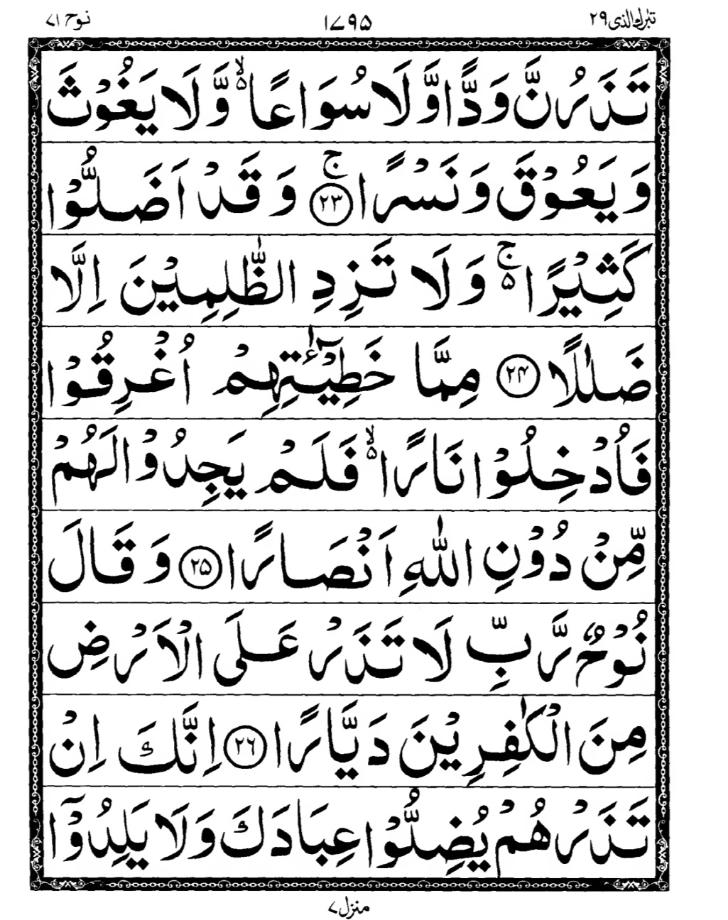 تبٰرك الذی ۲۹ ۱۷۹۵ نوح ۷۱
تَذَرُنَّ وَدًّا وَّلَا سُوَاعًا ۙ۬ وَّلَا يَغُوْثَ
وَيَعُوْقَ وَنَسْرًا ۚ‏﴿۲۳﴾ وَقَدْ اَضَلُّوْا
كَثِيْرًا ۚ۬ وَلَا تَزِدِ الظّٰلِمِيْنَ اِلَّا
ضَلٰلًا ﴿۲۴﴾ مِمَّا خَطِيْٓـــٰٔتِهِمْ اُغْرِقُوْا
فَاُدْخِلُوْا نَارًا ۙ۬ فَلَمْ يَجِدُوْا لَهُمْ
مِّنْ دُوْنِ اللّٰهِ اَنْصَارًا ﴿۲۵﴾ وَقَالَ
نُوْحٌ رَّبِّ لَا تَذَرْ عَلَى الْاَرْضِ
مِنَ الْكٰفِرِيْنَ دَيَّارًا ﴿۲۶﴾ اِنَّكَ اِنْ
تَذَرْهُمْ يُضِلُّوْا عِبَادَكَ وَلَا يَلِدُوْٓا
منزل ۷